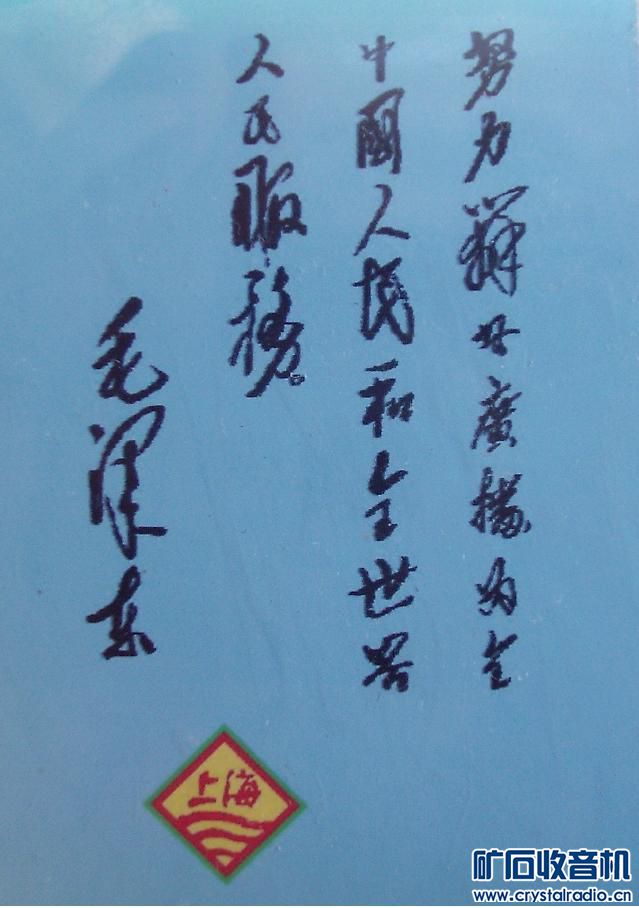 努力辦好廣播为全
中國人民和全世界
人民服務。
毛澤东
上海
矿石收音机
www.crystalradio.cn